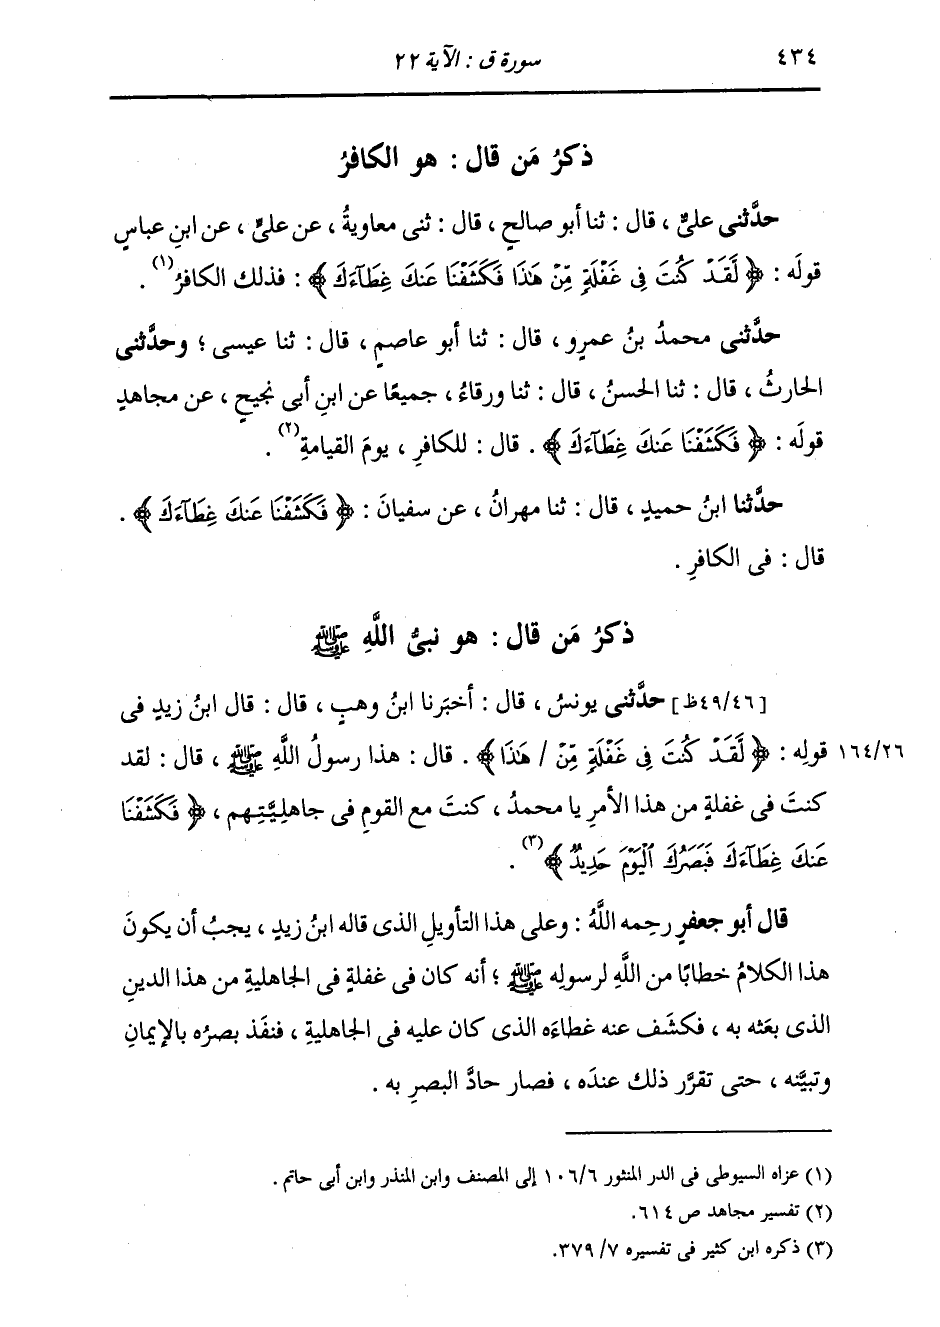 ٤٣٤ سورة ق : الآية ٢٢
ذكرُ مَن قال : هو الكافرُ
حدَّثنى علىٌّ ، قال : ثنا أبو صالحٍ ، قال : ثنى معاويةُ ، عن علىٍّ ، عن ابنِ عباسٍ
قولَه : ﴿ لَّقَدْ كُنتَ فِى غَفْلَةٍ مِّنْ هَٰذَا فَكَشَفْنَا عَنكَ غِطَآءَكَ ﴾ : فذلك الكافرُ(١) .
حدَّثنى محمدُ بنُ عمرٍو ، قال : ثنا أبو عاصمٍ ، قال : ثنا عيسى ؛ وحدَّثنى
الحارثُ ، قال : ثنا الحسنُ ، قال : ثنا ورقاءُ ، جميعًا عن ابنِ أبى نجيحٍ ، عن مجاهدٍ
قولَه : ﴿ فَكَشَفْنَا عَنكَ غِطَآءَكَ ﴾ . قال : للكافرِ ، يومَ القيامةِ(٢) .
حدَّثنا ابنُ حميدٍ ، قال : ثنا مهرانُ ، عن سفيانَ : ﴿ فَكَشَفْنَا عَنكَ غِطَآءَكَ ﴾ .
قال : فى الكافرِ .
ذكرُ مَن قال : هو نبىُّ اللَّهِ ﷺ
[٤٩/٤٦ظ] حدَّثنى يونسُ ، قال : أخبَرنا ابنُ وهبٍ ، قال : قال ابنُ زيدٍ فى
١٦٤/٢٦ قولِه : ﴿ لَّقَدْ كُنتَ فِى غَفْلَةٍ مِّنْ / هَٰذَا ﴾ . قال : هذا رسولُ اللَّهِ ﷺ ، قال : لقد
كنتَ فى غفلةٍ من هذا الأمرِ يا محمدُ ، كنتَ مع القومِ فى جاهليَّتِهم ، ﴿ فَكَشَفْنَا
عَنكَ غِطَآءَكَ فَبَصَرُكَ ٱلْيَوْمَ حَدِيدٌ ﴾(٣) .
قال أبو جعفرٍ رحِمه اللَّهُ : وعلى هذا التأويلِ الذى قاله ابنُ زيدٍ ، يجبُ أن يكونَ
هذا الكلامُ خطابًا من اللَّهِ لرسولِه ﷺ ؛ أنه كان فى غفلةٍ فى الجاهليةِ من هذا الدينِ
الذى بعَثه به ، فكشَف عنه غطاءَه الذى كان عليه فى الجاهليةِ ، فنفَذ بصرُه بالإيمانِ
وتبيَّنه ، حتى تقرَّر ذلك عندَه ، فصار حادَّ البصرِ به .
(١) عزاه السيوطى فى الدر المنثور ١٠٦/٦ إلى المصنف وابن المنذر وابن أبى حاتم .
(٢) تفسير مجاهد ص ٦١٤.
(٣) ذكره ابن كثير فى تفسيره ٧/ ٣٧٩.